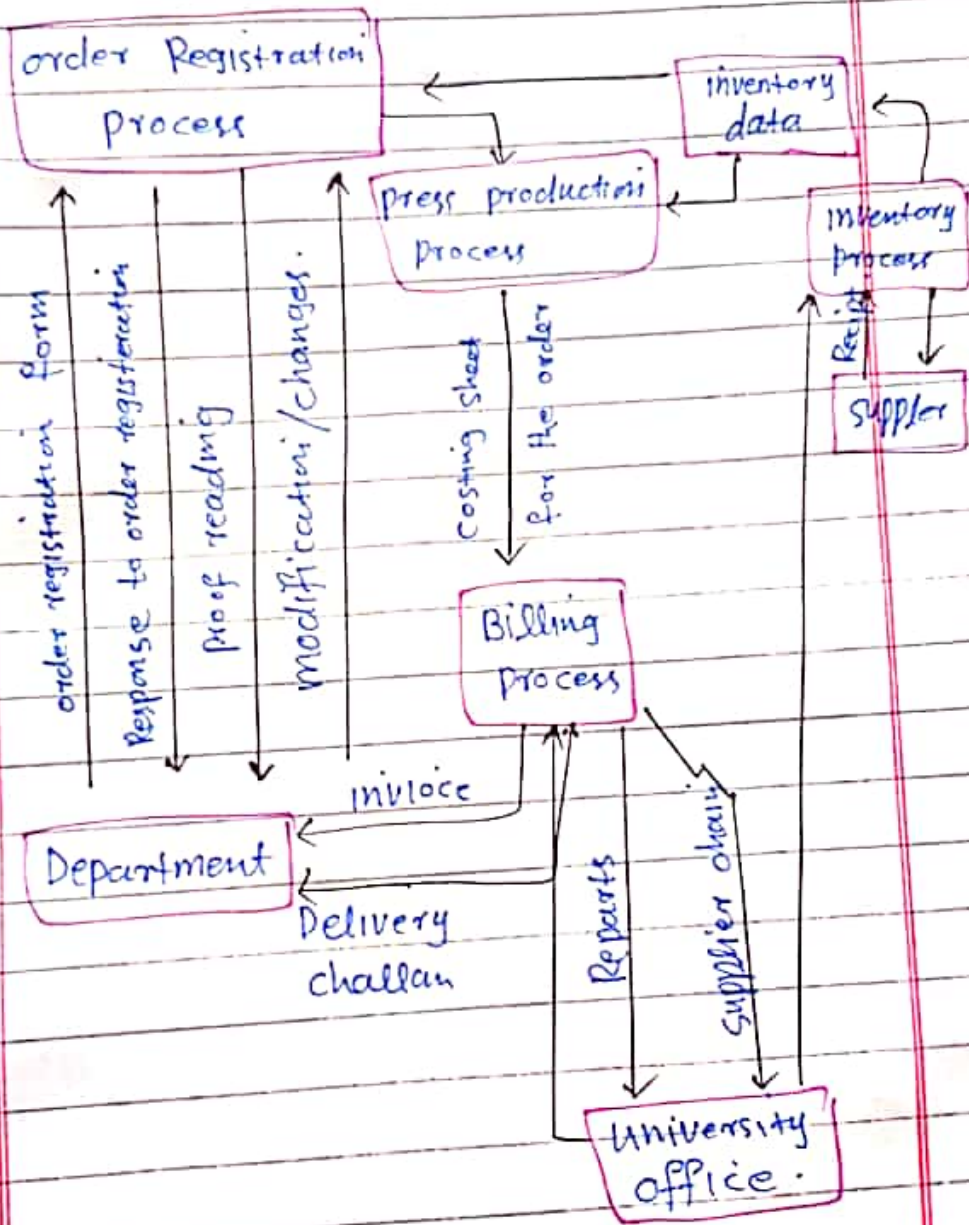 order Registration
process
inventory
data
press production
process
inventory
process
order registration form
Response to order registeration
proof reading
modification/changes.
costing sheet
for the order
Recipt
suppler
Billing
process
inivloce
Department
Delivery
challan
Reparts
supplier chain
university
office.